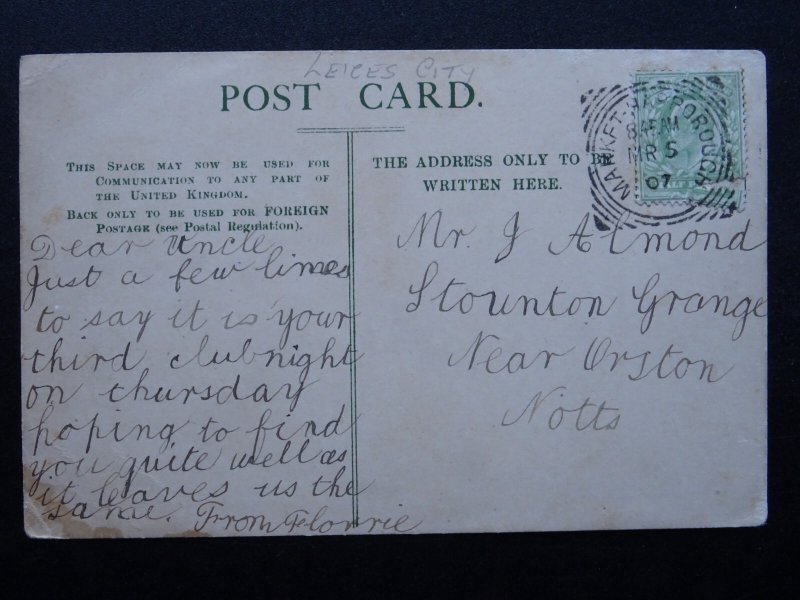 LEICES CITY
POST CARD.
THIS SPACE MAY NOW BE USED FOR
COMMUNICATION TO ANY PART OF
THE UNITED KINGDOM.
BACK ONLY TO BE USED FOR FOREIGN
POSTAGE (see Postal Regulation).
Dear Uncle
Just a few lines
to say it is your
third clubnight
on thursday
hoping to find
you quite well as
it leaves us the
same. From Florrie
THE ADDRESS ONLY TO BE
WRITTEN HERE.
MARKET-HARBOROUGH
MR 5
07
Mr. J Almond
Stounton Grange
Near Orston
Notts